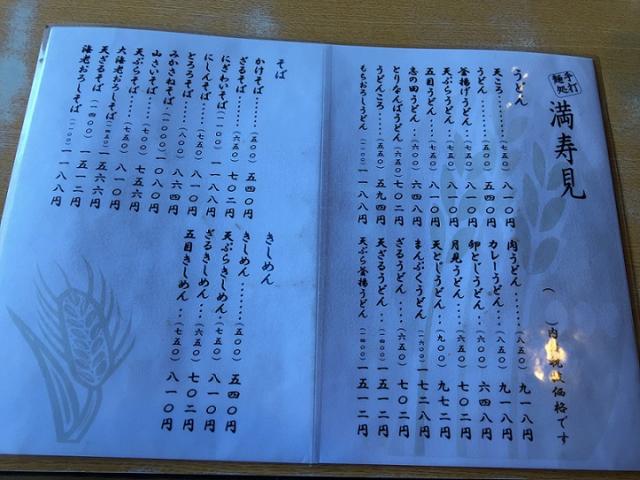 手打
麺処
満寿見
( )内は税抜価格です
うどん
天ころ……(七五〇)八一〇円
うどん……(五〇〇)五四〇円
釜揚げうどん…(七五〇)八一〇円
天ぷらうどん…(七五〇)八一〇円
五目うどん…(七五〇)八一〇円
志の田うどん…(六〇〇)六四八円
とりなんばうどん(六五〇)七〇二円
うどんころ……(五五〇)五九四円
もちおろしうどん(一一〇〇)一一八八円
肉うどん……(八五〇)九一八円
カレーうどん…(八五〇)九一八円
卵とじうどん…(六〇〇)六四八円
月見うどん…(六五〇)七〇二円
天とじうどん…(九〇〇)九七二円
まんぷくうどん(一六〇〇)一七二八円
ざるうどん……(六五〇)七〇二円
天ざるうどん…(一四〇〇)一五一二円
天ぷら釜揚うどん(一四〇〇)一五一二円
そば
かけそば……(五〇〇)五四〇円
ざるそば……(六五〇)七〇二円
にぎわいそば(一一〇〇)一一八八円
にしんそば…(七五〇)八一〇円
とろろそば…(七五〇)八一〇円
みかさねそば(八〇〇)八六四円
山さいそば(一〇〇〇)一〇八〇円
天ぷらそば…(七〇〇)七五六円
大海老おろしそば(七五〇)八一〇円
天ざるそば(一四五〇)一五六六円
天おろしそば(一四〇〇)一五一二円
海老おろしそば(一一〇〇)一一八八円
きしめん
きしめん……(五〇〇)五四〇円
天ぷらきしめん…(七五〇)八一〇円
ざるきしめん…(六五〇)七〇二円
五目きしめん…(七五〇)八一〇円